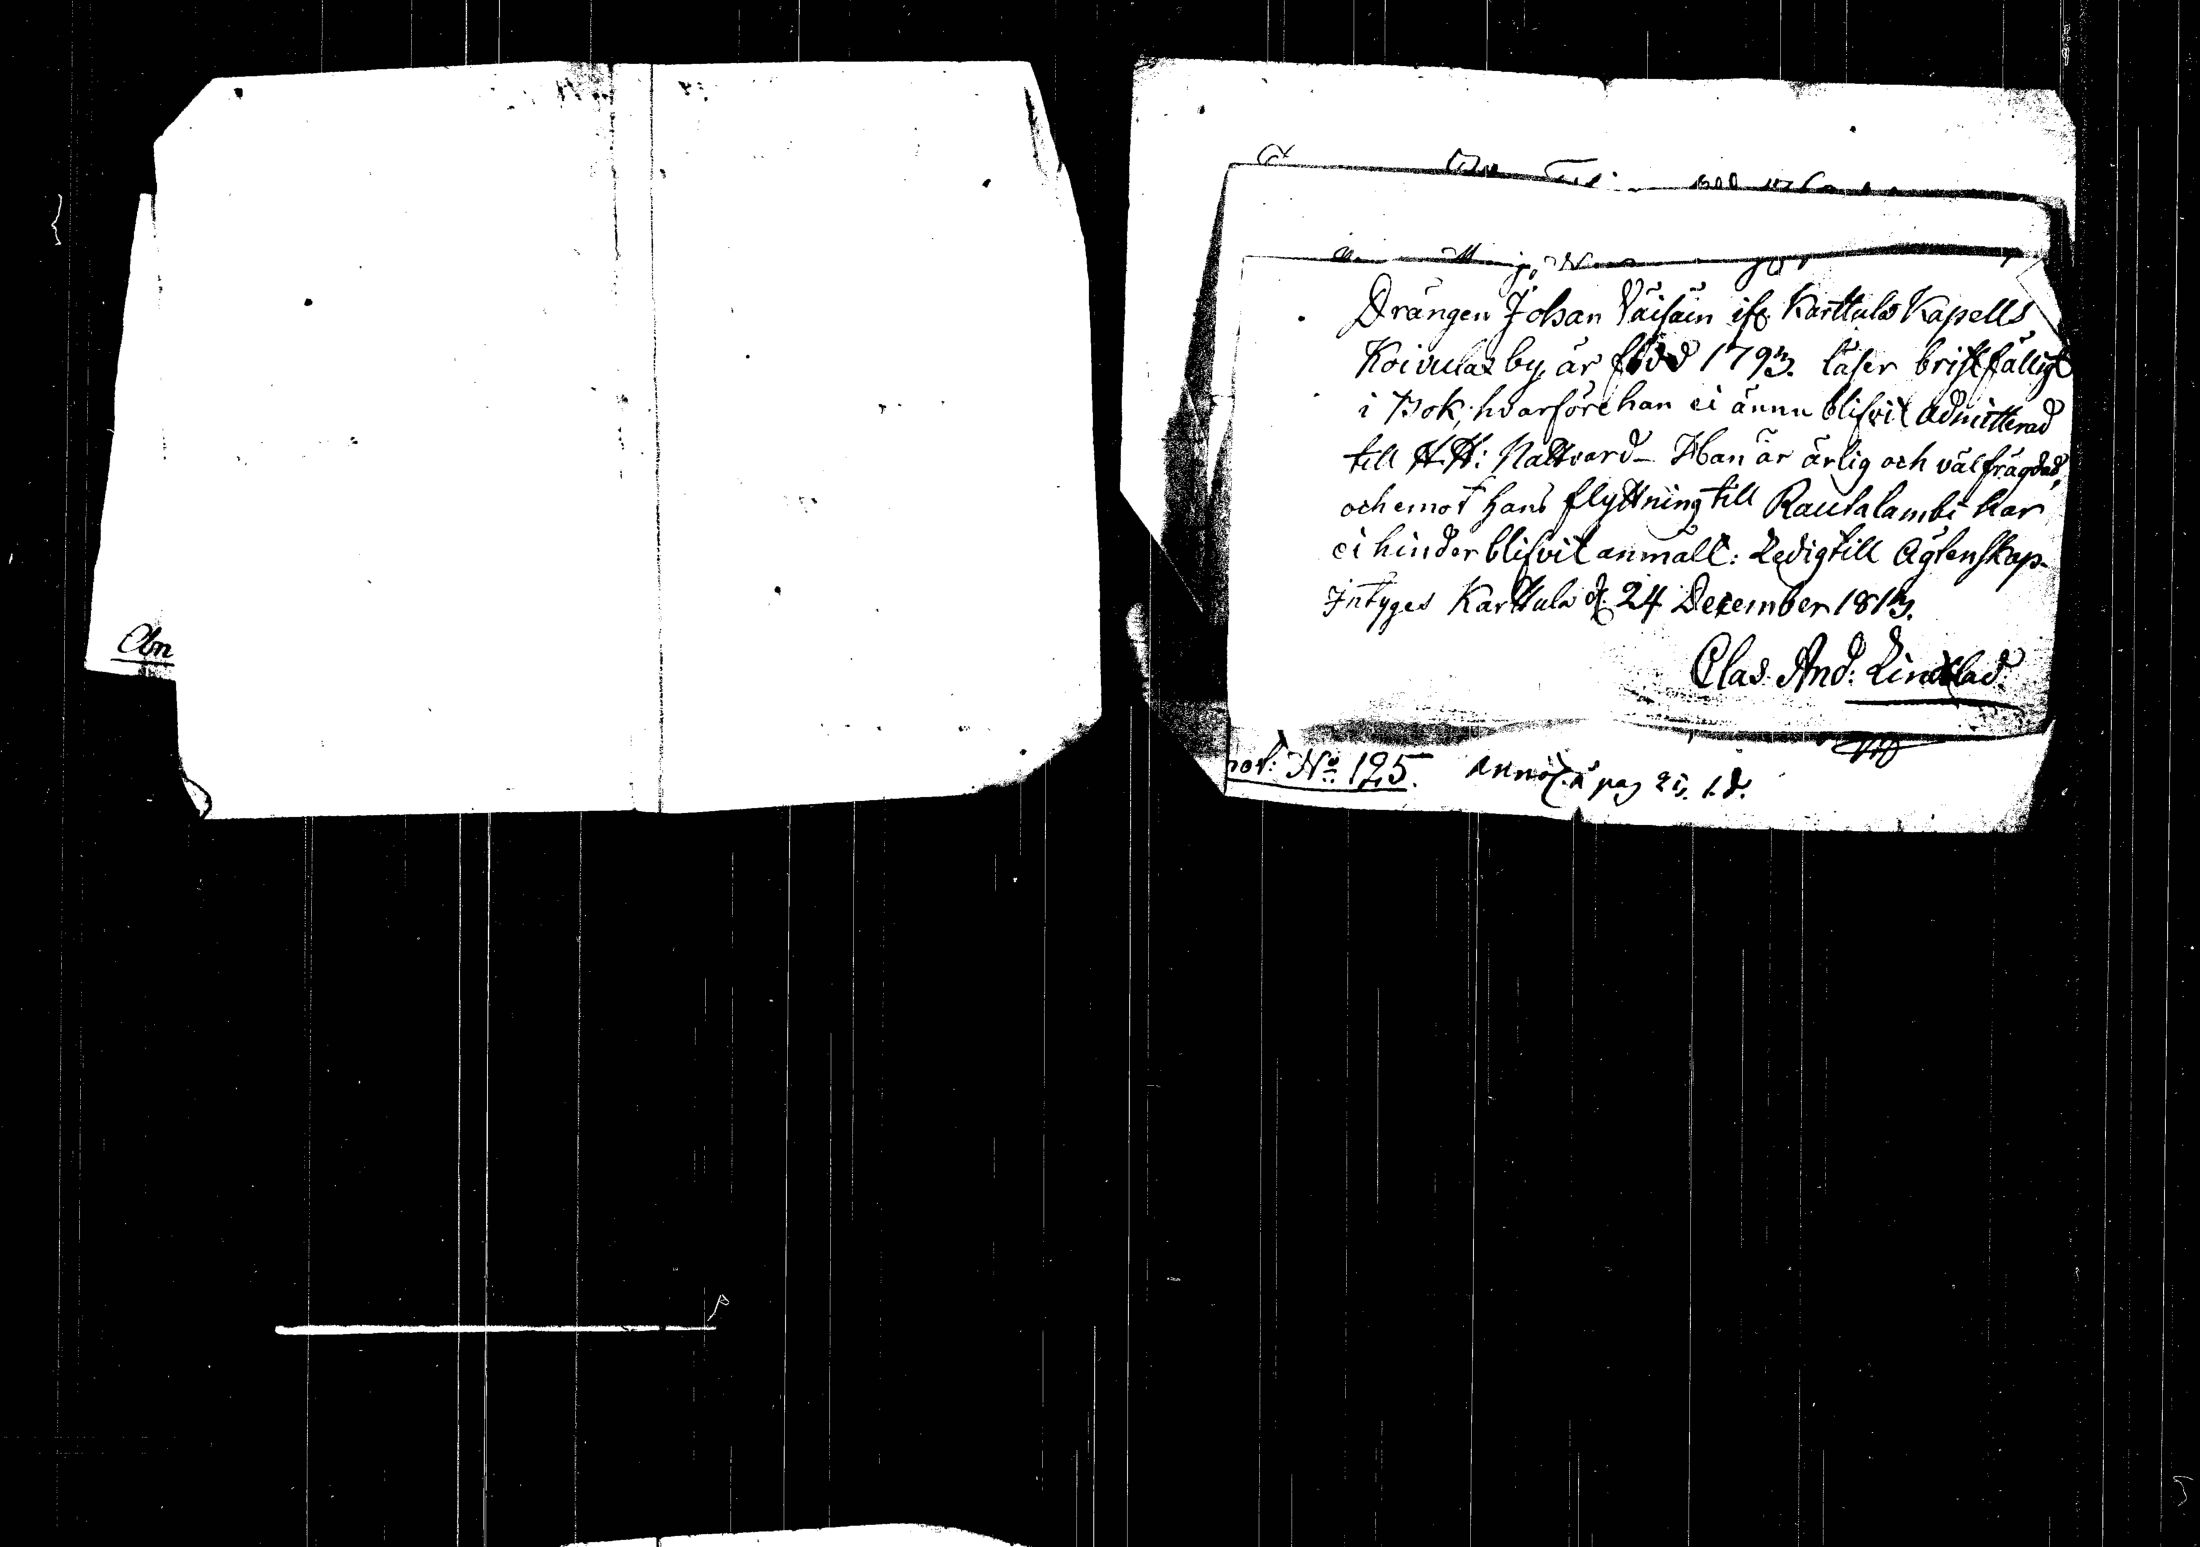 Drängen Johan Väisäin ifr. Karttula Kapells
Koivulax by, är född 1793. läser bristfälligt
i Bok, hvarföre han ei ännu blifvit admitterad
till H.H: Nattvard_ Han är ärlig och välfrägdad,
och emot hans flyttning till Rautalambi har
ei hinder blifvit anmält: Ledig till Ägtenskap_
Intyges Karttula d. 24 December 1813.
Clas And: Lindblad.
not: No. 125. pag
Ann